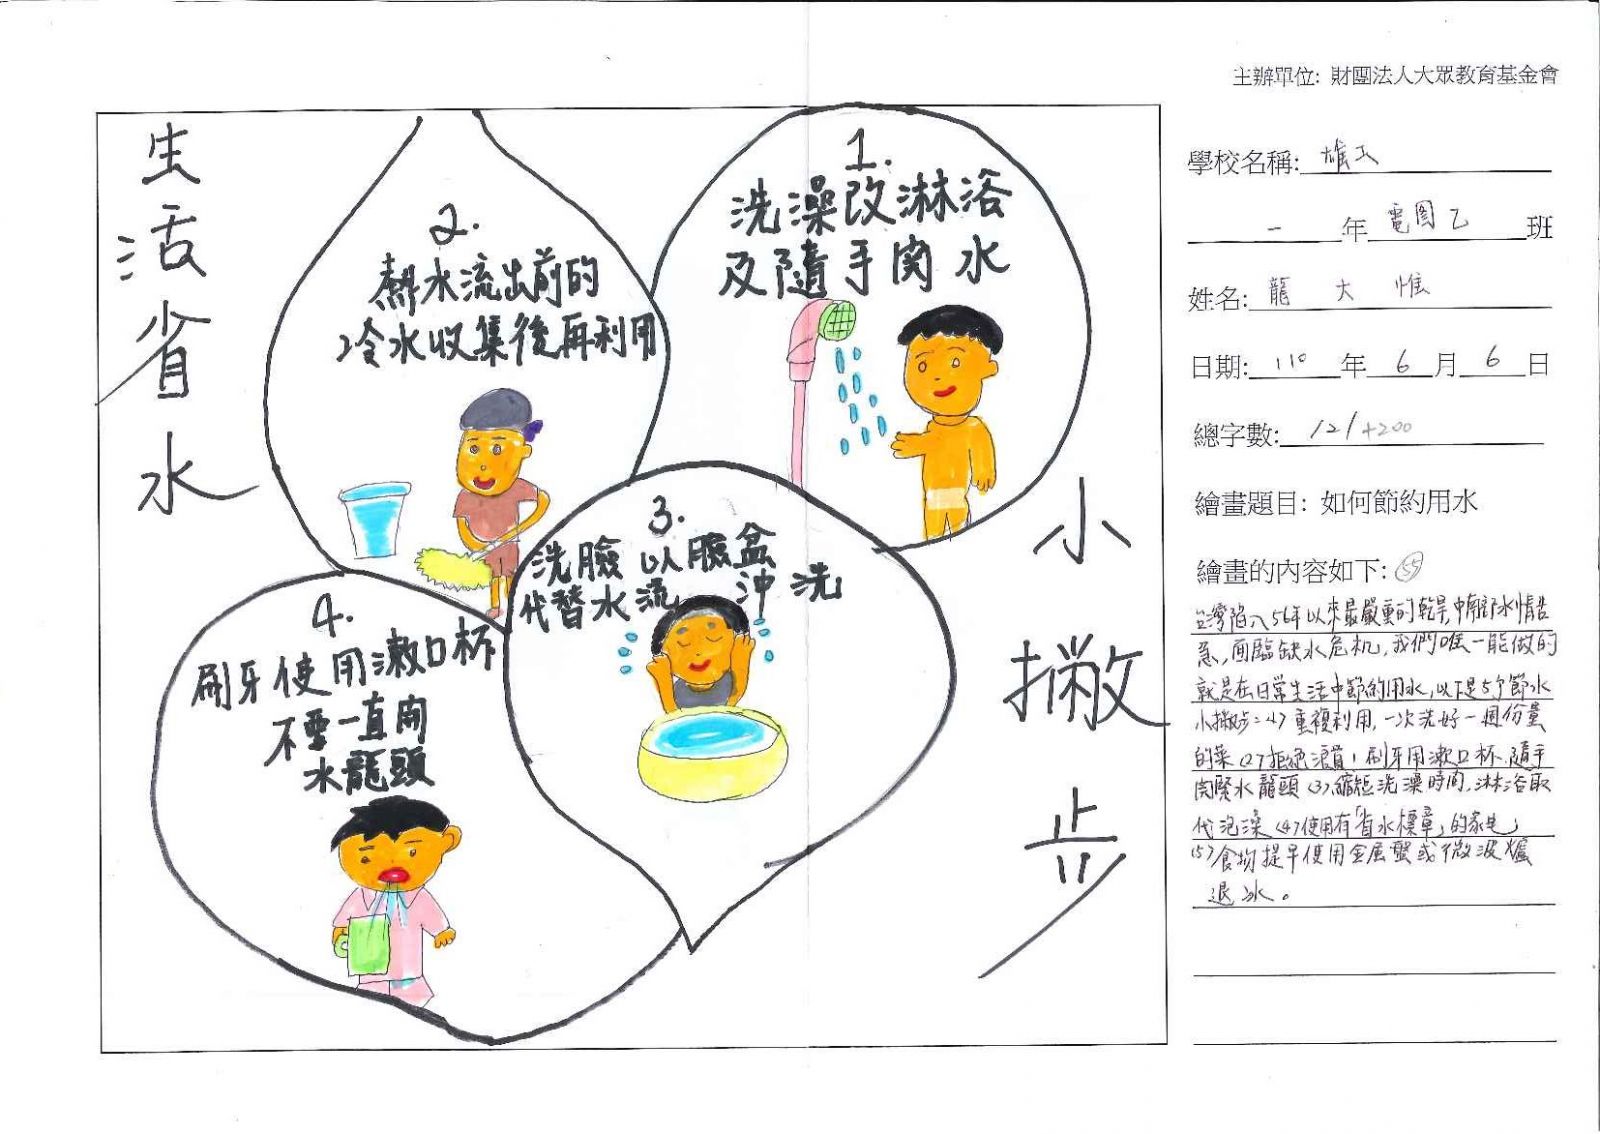 生活省水
小撇步
1.
洗澡改淋浴
及隨手関水
2.
熱水流出前的
冷水收集後再利用
3.
洗臉以臉盆
代替水流沖洗
4.
刷牙使用漱口杯
不要一直開
水龍頭
主辦單位: 財團法人大眾教育基金會
學校名稱: 雄工
一年電圖乙班
姓名: 龍大惟
日期: 110年6月6日
總字數: 121+200
繪畫題目: 如何節約用水
繪畫的內容如下: 55
台灣陷入56年以來最嚴重的乾旱,中南部水情告
急,面臨缺水危机,我們唯一能做的
就是在日常生活中節約用水,以下是5个節水
小撇步:(1)重複利用,一次洗好一週份量
的菜(2)拒絕浪費!刷牙用漱口杯、隨手
関緊水龍頭(3)縮短洗澡時間,淋浴取
代泡澡(4)使用有「省水標章」的家电;
(5)食物提早使用金屬盤或微波爐
退冰。